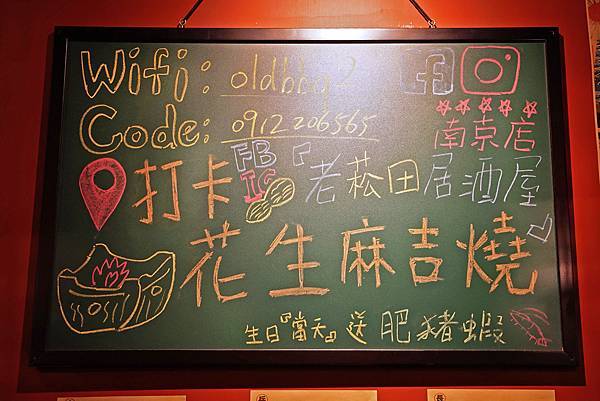 Wifi: oldbbq2
Code: 0912206565
南京店
打卡 FB IG 『老菘田居酒屋』
花生麻吉燒
生日『當天』送 肥豬蝦